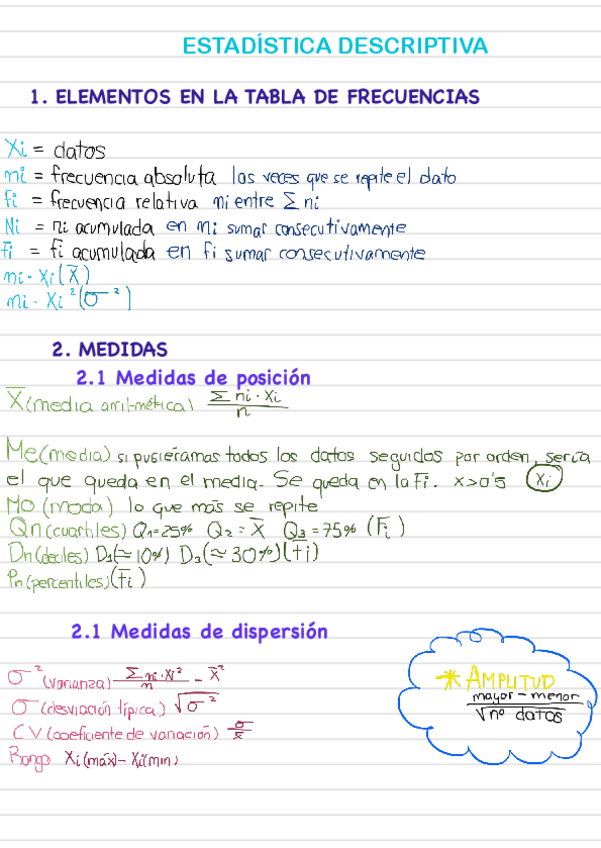 ESTADÍSTICA DESCRIPTIVA
1. ELEMENTOS EN LA TABLA DE FRECUENCIAS
Xi = datos
ni = frecuencia absoluta las veces que se repite el dato
fi = frecuencia relativa ni entre Σ ni
Ni = ni acumulada en ni sumar consecutivamente
Fi = fi acumulada en fi sumar consecutivamente
ni · Xi (X̄)
ni · Xi² (σ²)
2. MEDIDAS
2.1 Medidas de posición
X̄ (media aritmética) Σ ni · xi / n
Me (media) si pusiéramos todos los datos seguidos por orden, sería
el que queda en el media. Se queda en la Fi. x>0'5 (xi)
Mo (moda) lo que más se repite
Qn (cuartiles) Q₁=25% Q₂ = X̄ Q₃ = 75% (Fi)
Dn (deciles) D₁(≈ 10%) D₃(≈ 30%) (Fi)
Pn (percentiles) (Fi)
2.1 Medidas de dispersión
σ² (varianza) Σ ni · Xi² / n - X̄²
σ (desviación típica) √σ²
CV (coeficiente de variación) σ / x̄
Rango Xi (máx) - Xi (min)
* AMPLITUD
mayor - menor
√nº datos